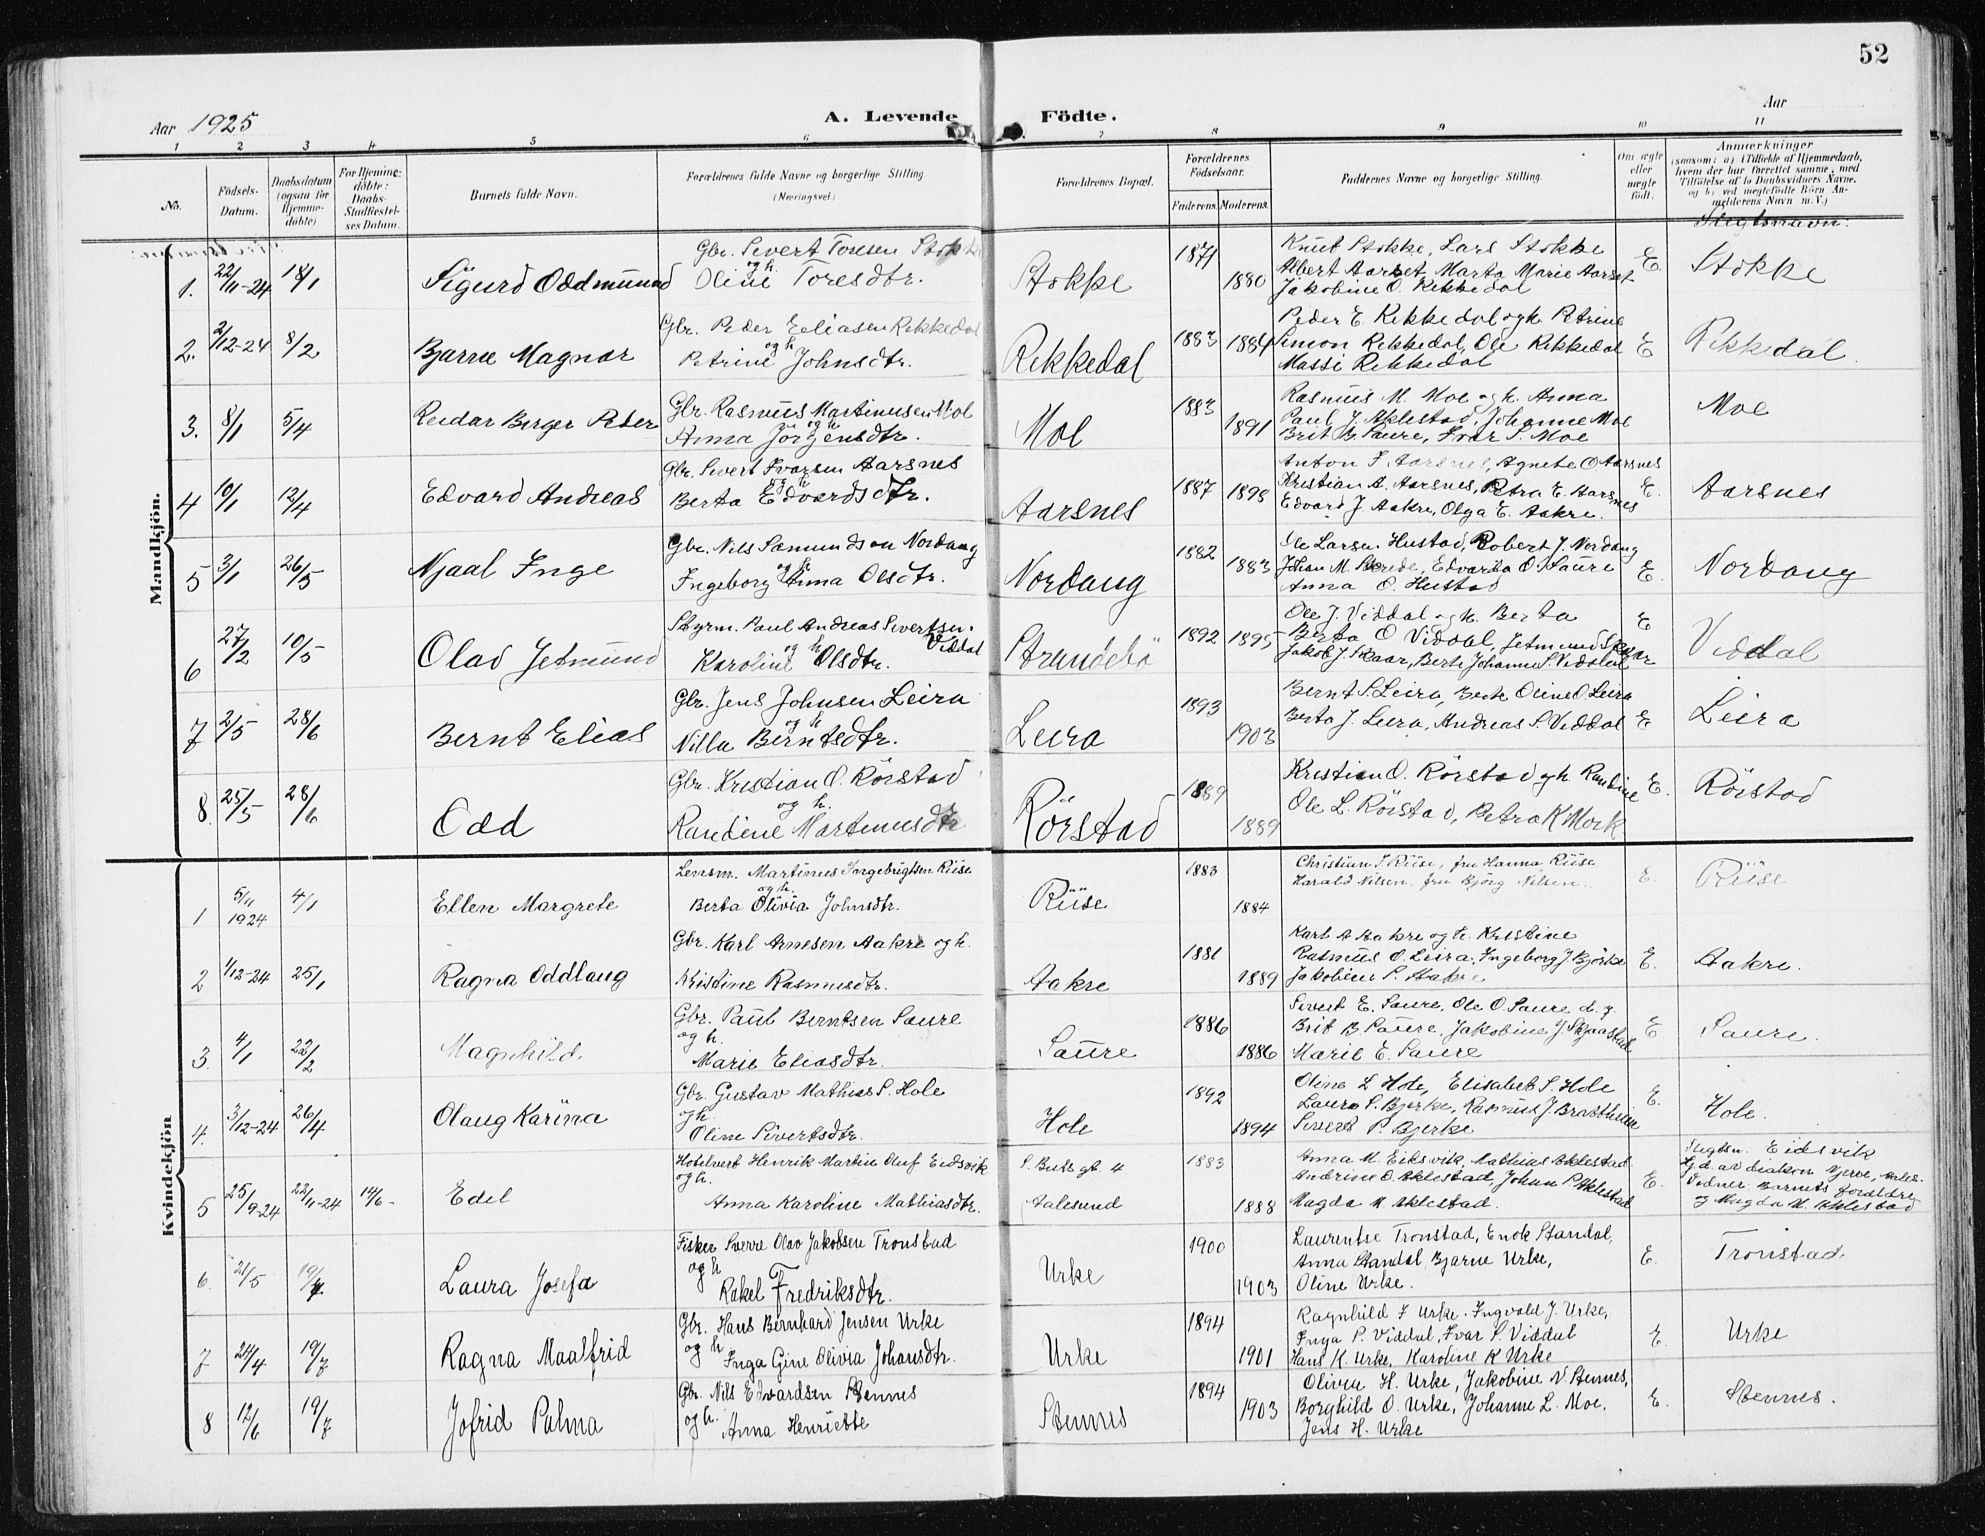 52
Aar 1925
A. Levende Födte.
Aar
1 2 3 4 5 6 7 8 9 10 11
No.
Födsels-Datum.
Daabsdatum (ogsaa for Hjemme-döbte)
For Hjemme-döbte: Daabs-Stadfæstel-ses Datum.
Barnets fulde Navn.
Forældrenes fulde Navne og borgerlige Stilling (Næringsvei.)
Forældrenes Bopæl.
Forældrenes Födselsaar.
Faderens. Moderens.
Faddernes Navne og borgerlige Stilling.
Om ægte eller uægte födt.
Anmærkninger
(saasom: a) i Tilfælde af Hjemmedaab, hvem der har forrettet samme, med Tilföielse af to Daabsvidners Navne, og b) ved uægtefödte Börn An-melderens Navn m. V.)
Slegtsnavn:
Mandkjön.
1. 22/11-24 18/1 Sigurd Oddmund
Gbr. Sivert Toresen Stokke
og h.
Oline Toresdtr.
Stokke 1871 1880
Knut Stokke, Lars Stokke
Albert Aarset, Marta Marie Aarset
Jakobine O. Rekkedal
E. Stokke
2. 2/12-24 8/2 Bjarne Magnar
Gbr. Peder Eliasen Rekkedal
og h
Petrine Johnsdtr.
Rekkedal 1883 1884
Peder E. Rekkedal og h. Petrine
Simon Rekkedal, Ole Rekkedal
Massi Rekkedal
E Rekkedal.
3. 8/1 5/4 Reidar Berger Peter
Gbr. Rasmus Martinusen Moe
og h
Anna Jörgensdtr.
Moe 1883 1891
Rasmus M. Moe og h. Anna
Paul J. Aklestad, Johanne Moe
Brit B. Saure, Ivar S. Moe
Moe
4 10/1 12/4 Edvard Andreas
Gbr. Sivert Ivarsen Aarsnes
og h
Berta Edvardsdtr.
Aarsnes 1887 1898
Anton I. Aarsnes, Agnete O Aarsnes
Kristian A. Aarsnes, Petra E. Aarsnes
Edvard J Aakre, Olga E. Aakre.
E. Aarsnes
5 3/1 26/5 Njaal Inge
Gbr. Nils Samundson Nordang
og h
Ingeborg Anna Olsdtr.
Nordang 1882 1883
Ole Larsen Hustad, Robert J. Nordang
Johan M. Skrede, Edvarda O. Saure
Anna O. Hustad
E. Nordang
6 27/2 10/5 Olav Jetmund
Styrm. Paul Andreas Sivertsen
Viddal
og h
Karoline Olsdtr.
Strandebö 1892 1895
Ole J. Viddal og h. Berta
Berta O Viddal, Jetmund Skaar
Jakob J. Skaar, Berte Johanne S. Viddal
E Viddal
7 2/5 28/6 Bernt Elias
Gbr. Jens Johnsen Leira
og h
Nilla Berntsdtr.
Leira 1893 1903
Bernt S. Leira, Berte Oline O. Leira
Berta J. Leira, Andreas S. Viddal
E Leira
8. 25/5 28/6 Odd
Gbr. Kristian O. Rörstad
og h.
Randine Martinusdtr
Rörstad 1889 1889
Kristian O. Rörstad og h. Randine
Ole L. Rörstad, Petra K Mork
E. Rörstad
Kvindekjön
1 5/11 1924 4/1 Ellen Margrete
Lensm. Martinus Ingebrigtsen Riise
og h.
Berta Olivia Johnsdtr.
Riise 1883 1884
Christian I. Riise, fru Hanna Riise
Harald Nilsen, fru Björg Nilsen.
E. Riise
2 1/12-24 25/1 Ragna Oddlaug
Gbr. Karl Arnesen Aakre og h.
Kristine Rasmusdtr.
Aakre 1881 1889
Karl A Aakre og h. Kristine
Rasmus O. Leira, Ingeborg J Björke
Jakobine P. Aakre
E. Aakre.
3. 4/1 22/2 Magnhild.
Gbr. Paul Berntsen Saure
og h.
Marie Eliasdtr.
Saure 1886 1886
Sivert E. Saure, Ole O. Saure d.y.
Brit B Saure, Jakobine J. Skjaastad
Marie E. Saure
E Saure.
4. 3/12-24 26/4 Olaug Karina
Gbr. Gustav Mathias S. Hole
og h.
Oline Sivertsdtr.
Hole 1892 1894
Oline L Hole, Elisabet S. Hole
Laura S. Bjerke, Rasmus J. Brautheim
Sivert P. Bjerke
E. Hole.
5 25/9-24 22/11-24 14/6- Edel
Hotelvert Henrik Martin Oluf Eidsvik
og h.
Anna Karoline Mathiasdtr.
S. Buks gt 4
Aalesund 1883 1888
Anna M. Eiksvik, Mathias Aklestad
Andrine O. Aklestad, Johan P. Aklestad
Magda M Aklestad.
E.
Slegtsn. Eidsvik
Hj.d. av diakon Gjerve, Aales.
Vidner: Barnets foreldre
og Magda M. Aklestad
6. 21/5 19/7 Laura Josefa
Fisker Sverre Olav Jakobsen Tronstad
og h
Rakel Fredriksdtr.
Urke 1900 1903
Laurentse Tronstad, Enok Standal,
Anna Standal, Bjarne Urke,
Oline Urke.
E. Tronstad.
7 24/4 19/7 Ragna Maalfrid
Gbr. Hans Bernhard Jensen Urke
og h
Inga Gine Olivia Johansdtr.
Urke 1894 1901
Ragnhild I Urke. Ingvald J. Urke,
Inga P. Viddal, Ivar P. Viddal
Hans K. Urke, Karoline K Urke
E. Urke
8 12/6 19/7 Jofrid Palma
Gbr. Nils Edvardsen Stennes
og h.
Anna Henriette
Stennes 1894 1903
Olivia H. Urke, Jakobine N Stennes,
Borghild O. Urke, Johanne L. Moe,
Jens H. Urke
E. Stennes.